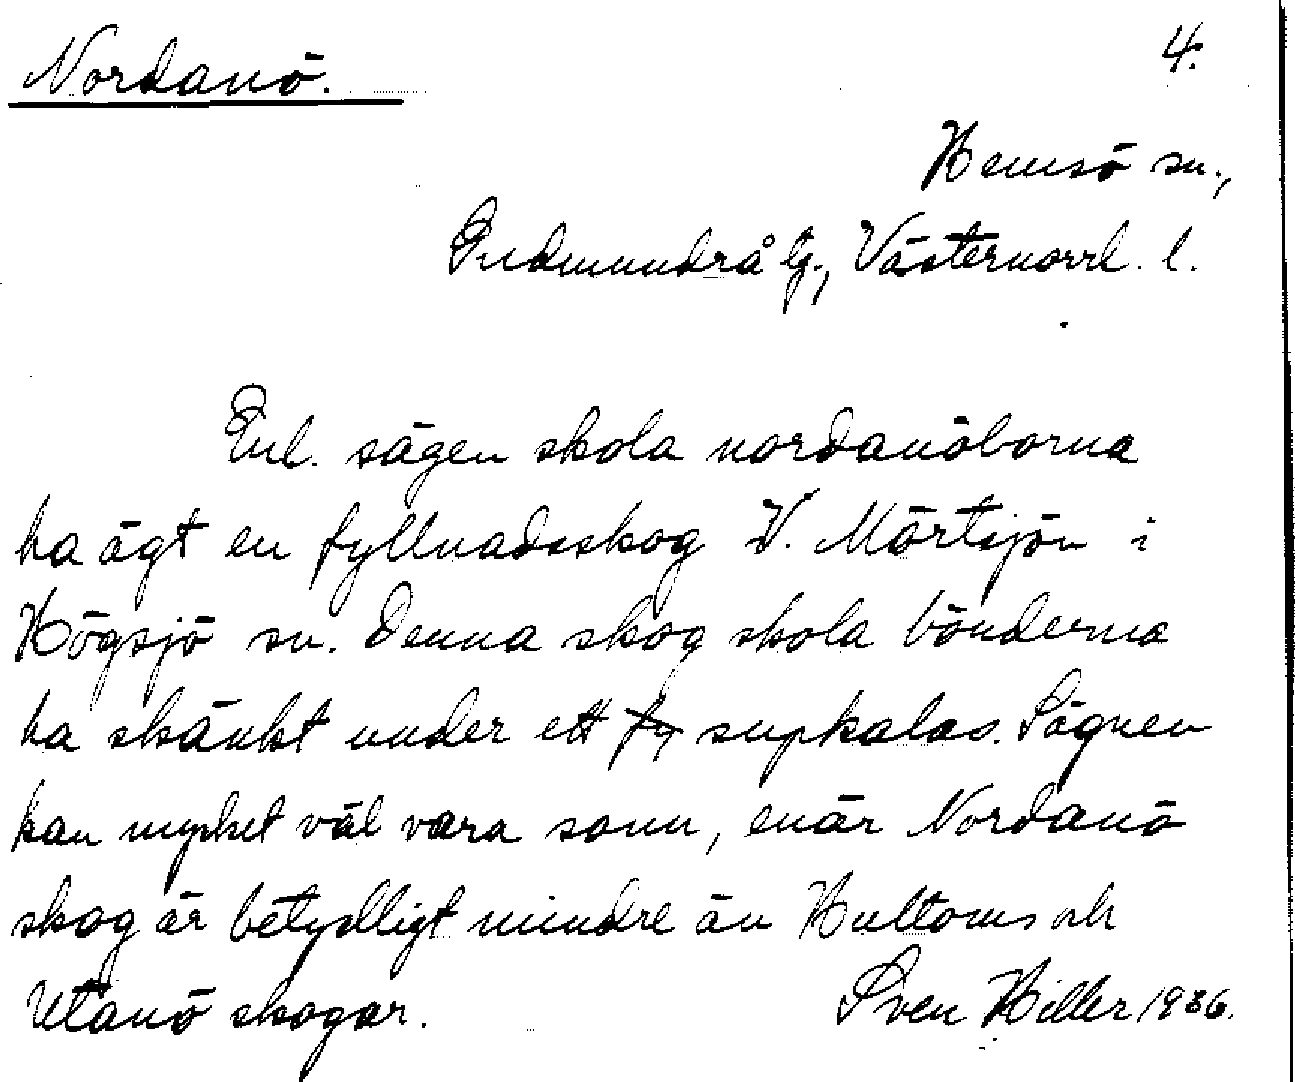 Nordanö.
4.
Hemsö sn.,
Gudmundrå tg., Västernorrl. l.
Enl. sägen skola nordanöborna
ha ägt en fyllnadsskog V. Mörtsjön i
Högsjö sn. Denna skog skola bönderna
ha skänkt under ett fy supkalas. Sägnen
kan mycket väl vara sann, enär Nordanö
skog är betydligt mindre än Hultoms och
Utanö skogar.
Sven Hiller 1936.